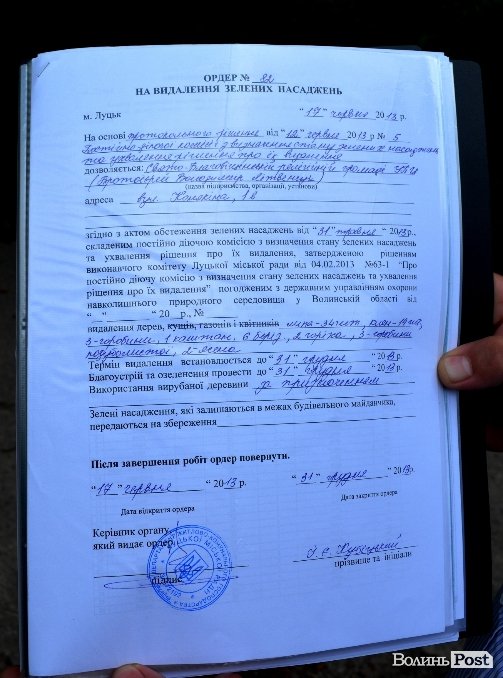 ОРДЕР № 92
НА ВИДАЛЕННЯ ЗЕЛЕНИХ НАСАДЖЕНЬ
м. Луцьк “17” червня 2013 р.
На основі протокольного рішення від “12” червня 2013 р № 5
Постійно діючої комісії з визначення стану зелених насаджень
та ухвалення рішення про їх видалення
дозволяється: Свято
релігійній громаді
(Протоієрей Володимир
(назва підприємства, організації, установи)
адреса вул.
згідно з актом обстеження зелених насаджень від “31” травня 2013р.
складеним постійно діючою комісією з визначення стану зелених насаджень
та ухвалення рішення про їх видалення, затвердженою рішенням
виконавчого комітету Луцької міської ради від 04.02.2013 №63-1 “Про
постійно діючу комісію з визначення стану зелених насаджень та ухвалення
рішення про їх видалення” погодженим з державним управлінням охорони
навколишнього природного середовища у Волинській області від
“ ” “20 р., №
видалення дерев, кущів, газонів і квітників липа-34шт,
3-горобини, 1 каштан, 2 горіха, 3-горобини
2-ясена
Термін видалення встановлюється до “31” грудня “2013р.
Благоустрій та озеленення провести до “31” грудня “2013р.
Використання вирубаної деревини за призначенням
Зелені насадження, які залишаються в межах будівельного майданчика,
передаються на збереження
Після завершення робіт ордер повернути.
“17” червня “ 2013 р. “31” грудня 2013р.
Дата відкриття ордера Дата закриття ордера
Керівник органу,
який видає ордер
підпис
прізвище та ініціали
Волинь Post